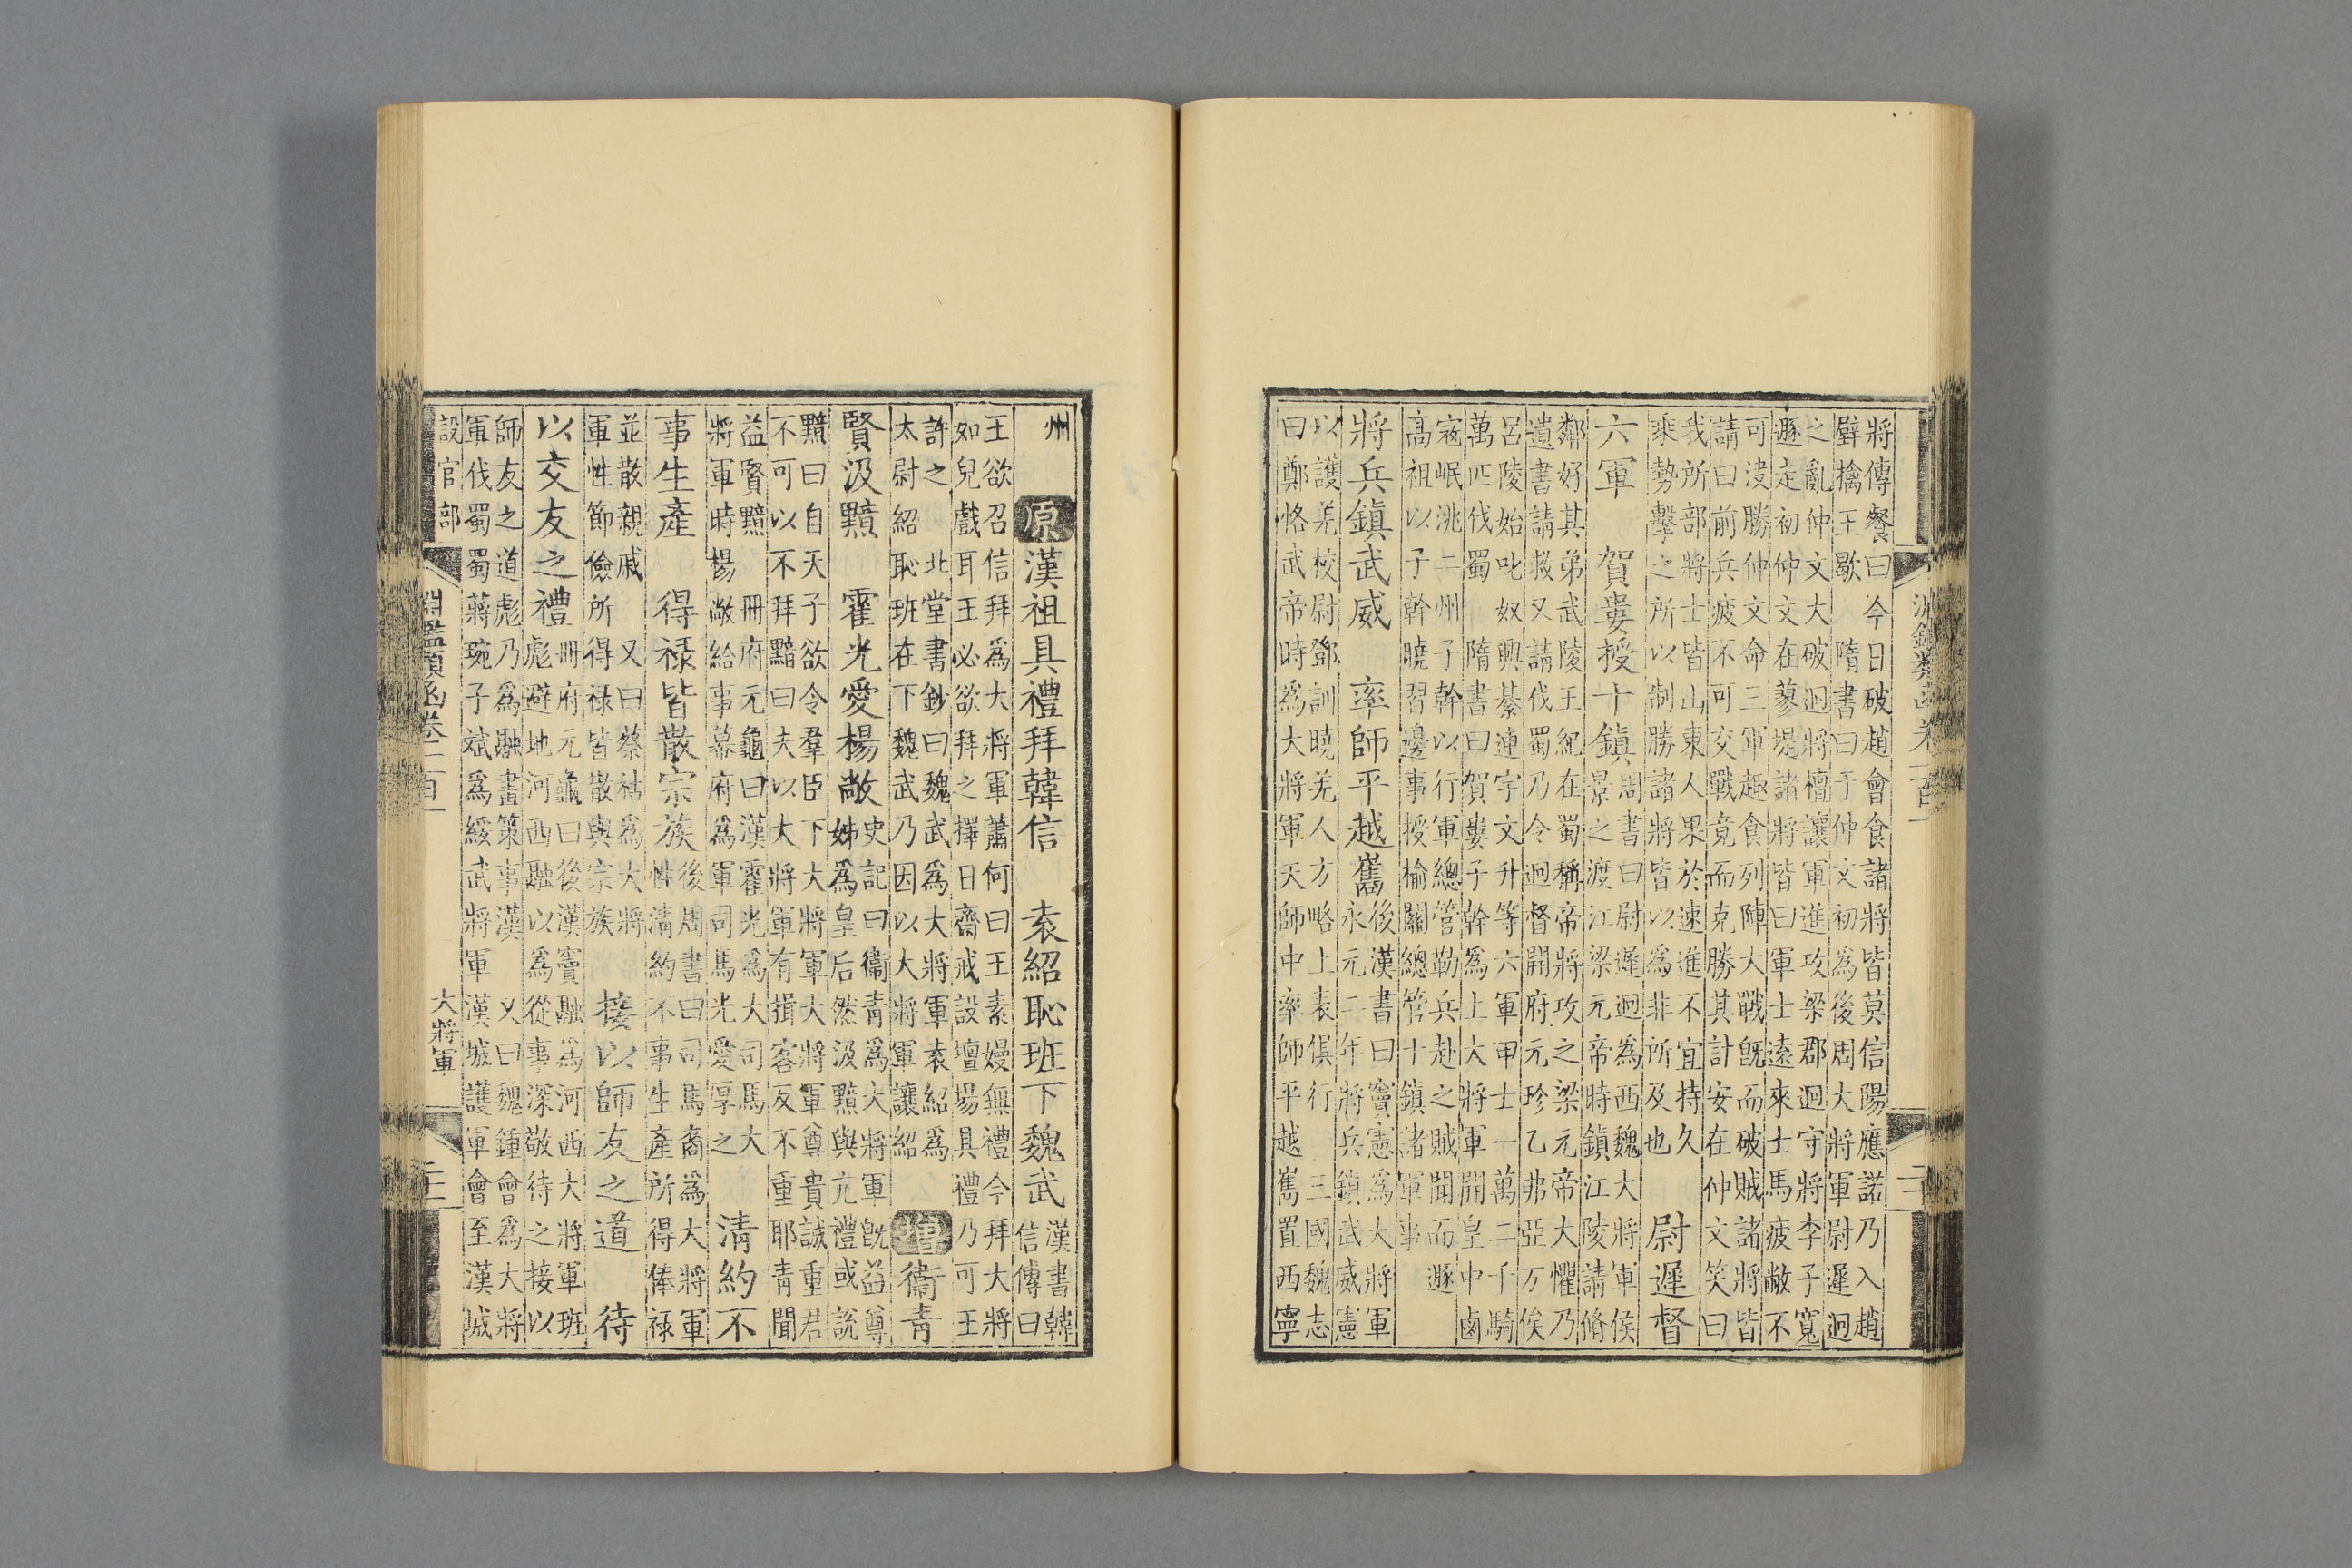 將傳餐曰今日破趙會食諸將皆莫信陽應諾乃入趙
壁擒王歇 隋書曰于仲文初為後周大將軍尉遲迥
之亂仲文大破迥將檀讓軍進攻梁郡迥守將李子寬
遯走初仲文在蓼堤諸將皆曰軍士遠來士馬疲敝不
可決勝仲文命三軍趣食列陣大戰旣而破賊諸將皆
請曰前兵疲不可交戰竟而克勝其計安在仲文笑曰
我所部將士皆山東人果於速進不宜持久
乘勢擊之所以制勝諸將皆以為非所及也
尉遲督
六軍 賀婁授十鎮
周書曰尉遲迥為西魏大將軍侯
景之渡江梁元帝時鎮江陵請脩
鄰好其弟武陵王紀在蜀稱帝將攻之梁元帝大懼乃
遺書請救又請伐蜀乃令迥督開府元珍乙弗亞万俟
呂陵始叱奴興綦連字文升等六軍甲士一萬二千騎
萬匹伐蜀 隋書曰賀婁子幹為上大將軍開皇中鹵
寇岷洮二州子幹以行軍總管勒兵赴之賊聞而遯
高祖以子幹曉習邊事授榆關總管十鎮諸軍事
將兵鎮武威 率師平越嶲
後漢書曰竇憲為大將軍
永元二年將兵鎮武威憲
以護羌校尉鄧訓曉羌人方略上表俱行 三國魏志
曰鄭恪武帝時為大將軍天師中率師平越嶲置西寧
州
原漢祖具禮拜韓信 袁紹恥班下魏武
漢書韓
信傳曰
王欲召信拜為大將軍蕭何曰王素嫚無禮今拜大將
如兒戲耳王必欲拜之擇日齋戒設壇場具禮乃可王
許之 北堂書鈔曰魏武為大將軍袁紹為
太尉紹恥班在下魏武乃因以大將軍讓紹
增衞青
賢汲黯 霍光愛楊敞
史記曰衞青為大將軍旣益尊
姊為皇后然汲黯與亢禮或說
黯曰自天子欲令羣臣下大將軍大將軍尊貴誠重君
不可以不拜黯曰夫以大將軍有揖客反不重耶青聞
益賢黯 冊府元龜曰漢霍光為大司馬大
將軍時楊敞給事幕府為軍司馬光愛厚之
清約不
事生產 得祿皆散宗族
後周書曰司馬裔為大將軍
性清約不事生產所得俸祿
並散親戚 又曰蔡祐為大將
軍性節儉所得祿皆散與宗族
接以師友之道 待
以交友之禮
冊府元龜曰後漢竇融為河西大將軍班
彪避地河西融以為從事深敬待之接以
師友之道彪乃為融畫策事漢 又曰魏鍾會為大將
軍伐蜀蜀蔣琬子斌為綏武將軍漢城護軍會至漢城
設官部 淵鑑類函卷二百一 大將軍 三